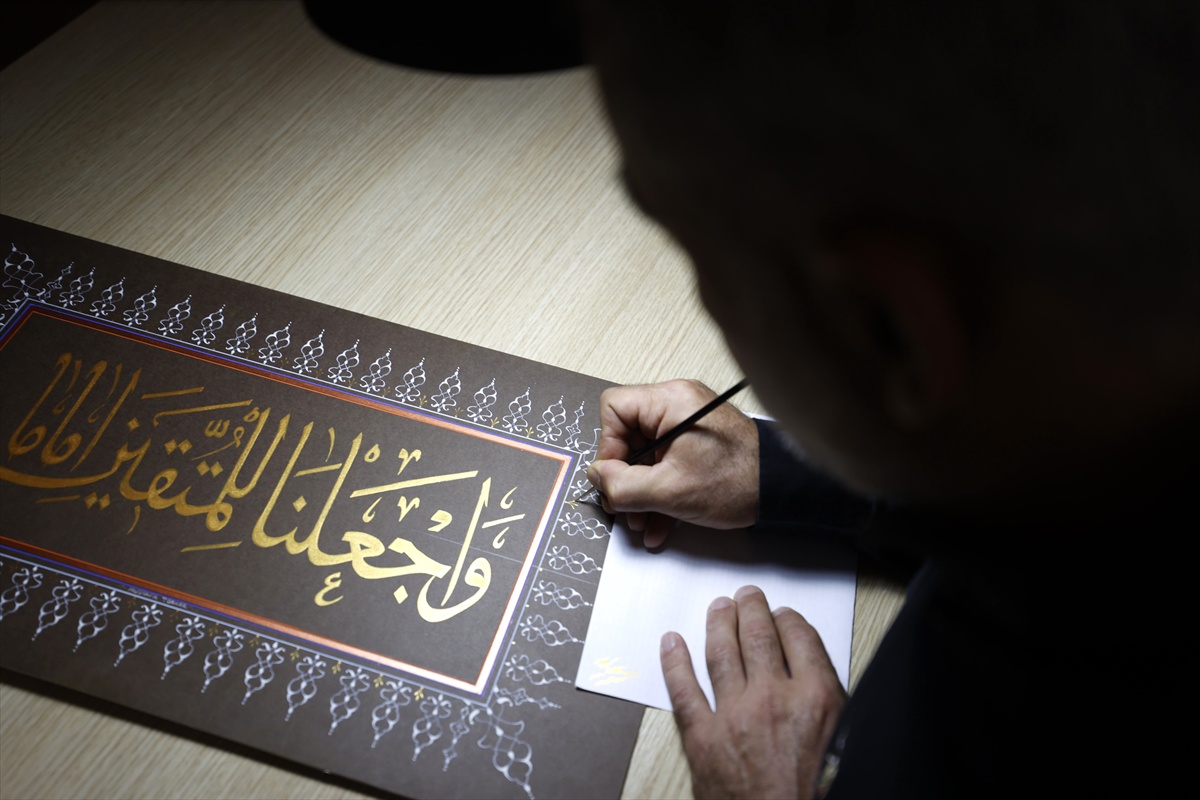 وَاجْعَلْنَا لِلْمُتَّقِينَ اِمَامًا